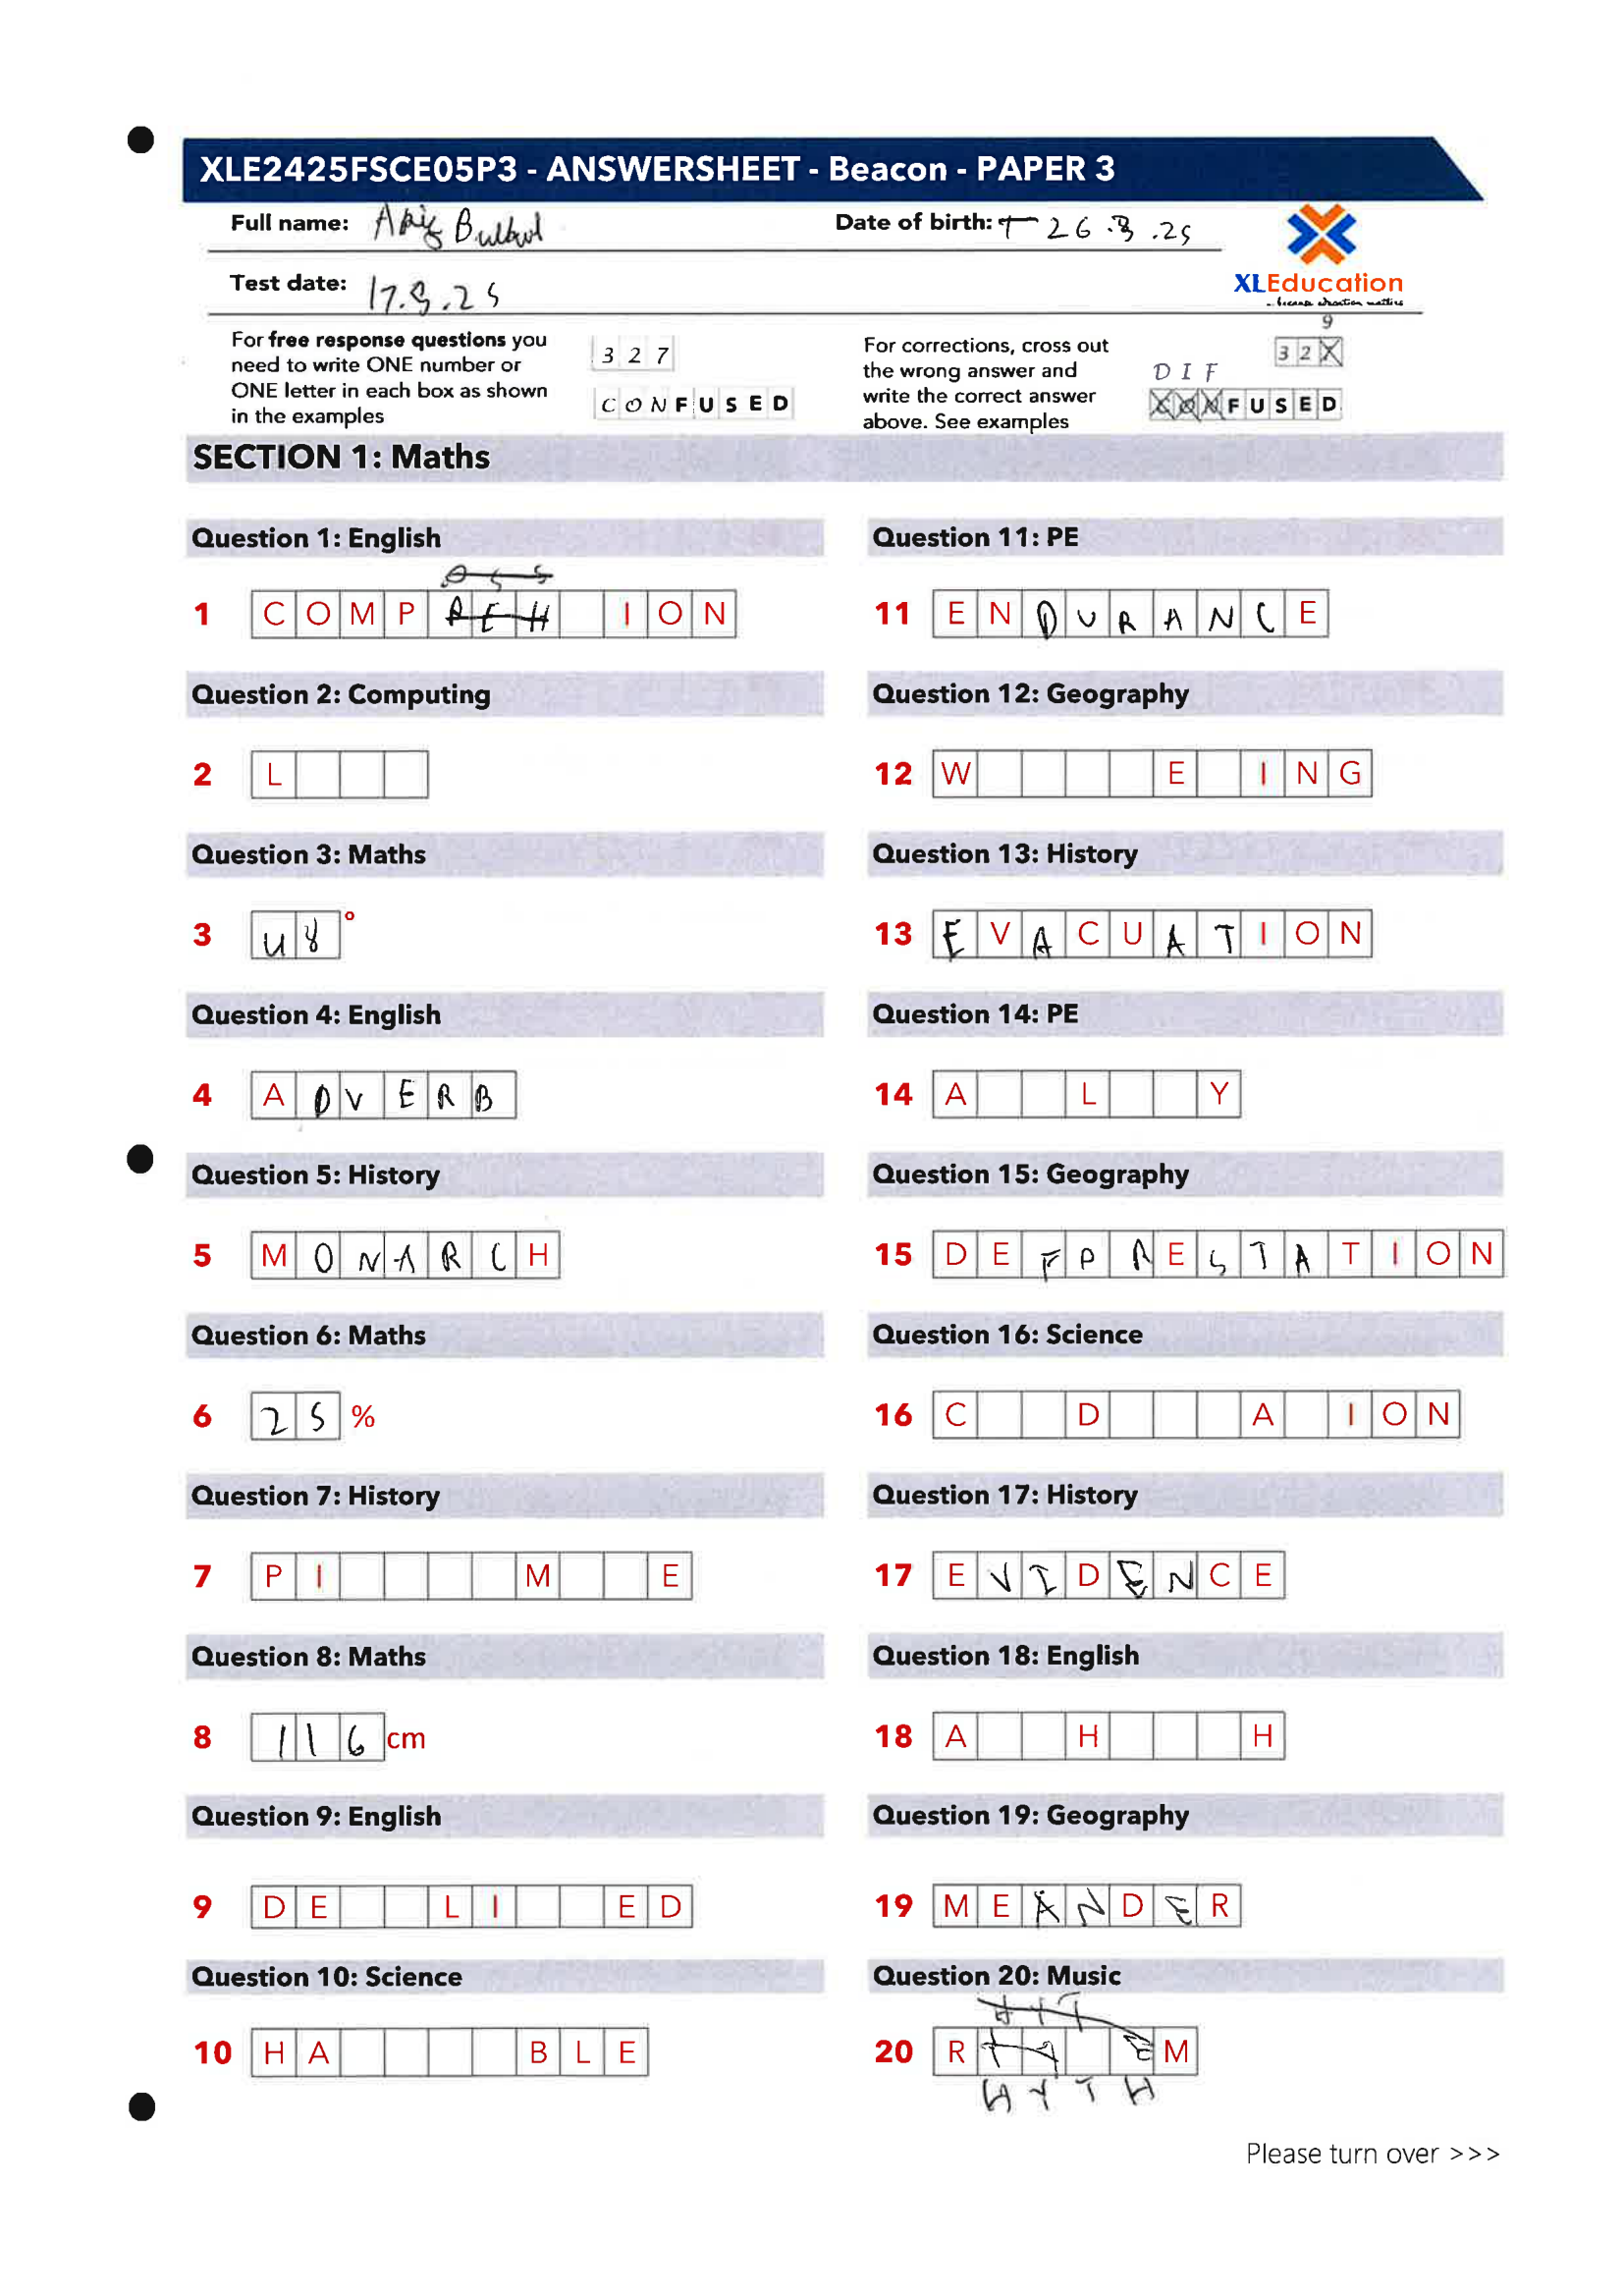 XLE2425FSCE05P3 - ANSWERSHEET - Beacon - PAPER 3
Full name:
Date of birth: 26.3.25
Test date: 17.9.25
XLEducation
...because education matters
For free response questions you
need to write ONE number or
ONE letter in each box as shown
in the examples
3 2 7
C O N F U S E D
For corrections, cross out
the wrong answer and
write the correct answer
above. See examples
9
3 2 X
D I F
F U S E D
SECTION 1: Maths
Question 1: English
1 C O M P R E H I O N
Question 2: Computing
2 L
Question 3: Maths
3 4 8 °
Question 4: English
4 A D V E R B
Question 5: History
5 M O N A R C H
Question 6: Maths
6 2 5 %
Question 7: History
7 P I M E
Question 8: Maths
8 1 1 6 cm
Question 9: English
9 D E L I E D
Question 10: Science
10 H A B L E
Question 11: PE
11 E N D U R A N C E
Question 12: Geography
12 W E I N G
Question 13: History
13 E V A C U A T I O N
Question 14: PE
14 A L Y
Question 15: Geography
15 D E F O R E S T A T I O N
Question 16: Science
16 C D A I O N
Question 17: History
17 E V I D E N C E
Question 18: English
18 A H H
Question 19: Geography
19 M E A N D E R
Question 20: Music
20 R M
H Y T H
Please turn over >>>